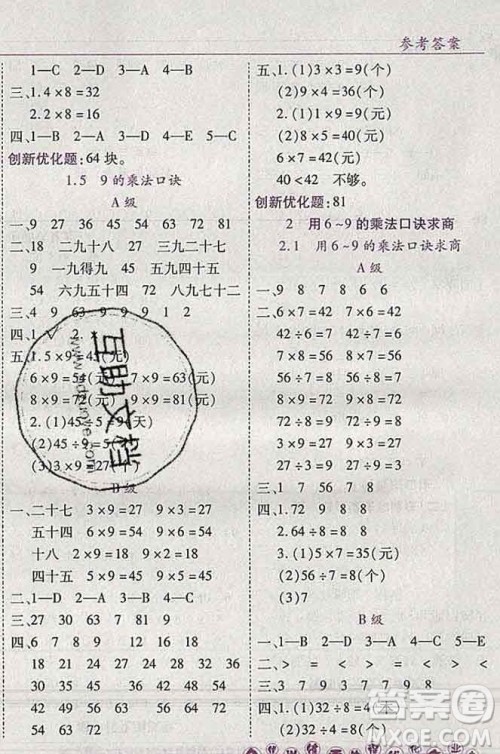 参考答案
1—C 2—D 3—A 4—B
三、1.4×8=32
2.2×8=16
四、1—B 2—D 3—A 4—E 5—C
创新优化题：64 块。
1.5 9 的乘法口诀
A 级
一、9 27 36 45 54 63 72 81
二、18 二九十八 27 三九二十七
9 一九得九 45 五九四十五
54 六九五十四 72 八九七十二
三、4 9 63 9 9 9 1 2
四、1.√ 2.
五、1.5×9=45(元)
6×9=54(元) 7×9=63(元)
8×9=72(元) 9×9=81(元)
2.(1)45÷5=9(天)
(2)45÷9=5
(3)3×9=27
B 级
一、二十七 3×9=27 9×3=27
五十四 6×9=54 9×6=54
十八 2×9=18 9×2=18
四十五 5×9=45 9×5=45
二、1—D 2—A 3—C 4—B
三、27 30 63 78 81 9
四、6 9 12 15
18 21 24 27
30 35 40 45
36 42 48 54
54 63 72
五、1.(1)3×3=9(个)
(2)4×9=36(个)
2.(1)1×9=9(元)
(2)5×8=40(元)
6×7=42(元)
40<42 不够。
创新优化题：81
2 用 6~9 的乘法口诀求商
2.1 用 6~9 的乘法口诀求商
A 级
一、9 8 7 8 8 6
二、6×7=42 7×6=42
42÷6=7 42÷7=6
7×8=56 8×7=56
56÷7=8 56÷8=7
8×9=72 9×8=72
72÷8=9 72÷9=8
三、8 9 7 6 7 8
四、1.72 9 8 8
2.64÷8=8
3.(1)5×7=35(元)
(2)56÷7=8(个)
(3)7
B 级
一、1—B 2—D 3—A 4—C
二、< > = < > =
三、1 3 7 9 7 9 8
四、1.(1)32÷8=4(本)
(2)32÷4=8(个)